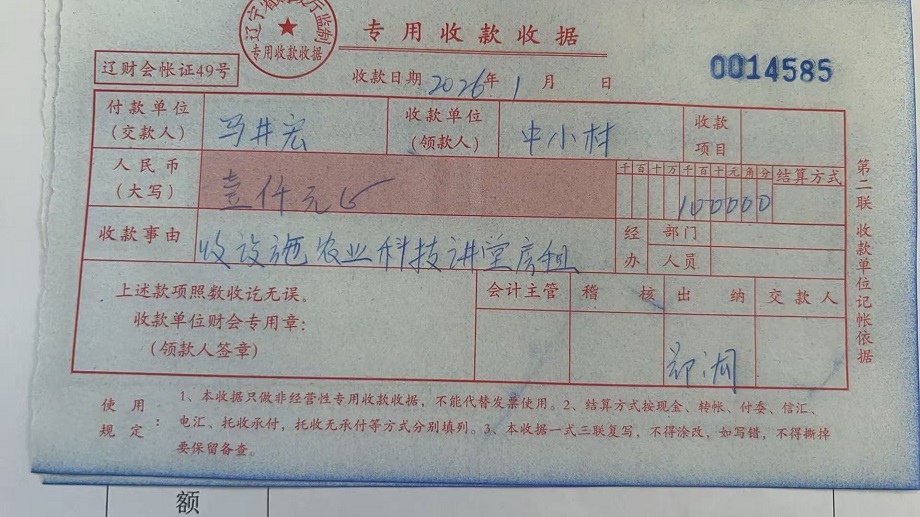 专用收款收据
专用收款收据
辽财会帐证49号
收款日期 2026年 1月 日
0014585
付款单位
(交款人)
马井宏
收款单位
(领款人)
中小村
收款
项目
人民币
(大写)
壹仟元
千百十万千百十元角分
100000
结算方式
收款事由
收设施农业科技讲堂房租
经办
部门
人员
上述款项照数收讫无误。
收款单位财会专用章:
(领款人签章)
会计主管
稽核
出纳
交款人
第二联 收款单位记帐依据
使用规定:
1、本收据只做非经营性专用收款收据,不能代替发票使用。2、结算方式按现金、转帐、付委、信汇、
电汇、托收承付,托收无承付等方式分别填列。3、本收据一式三联复写,不得涂改,如写错,不得撕掉
要保留备查。
额